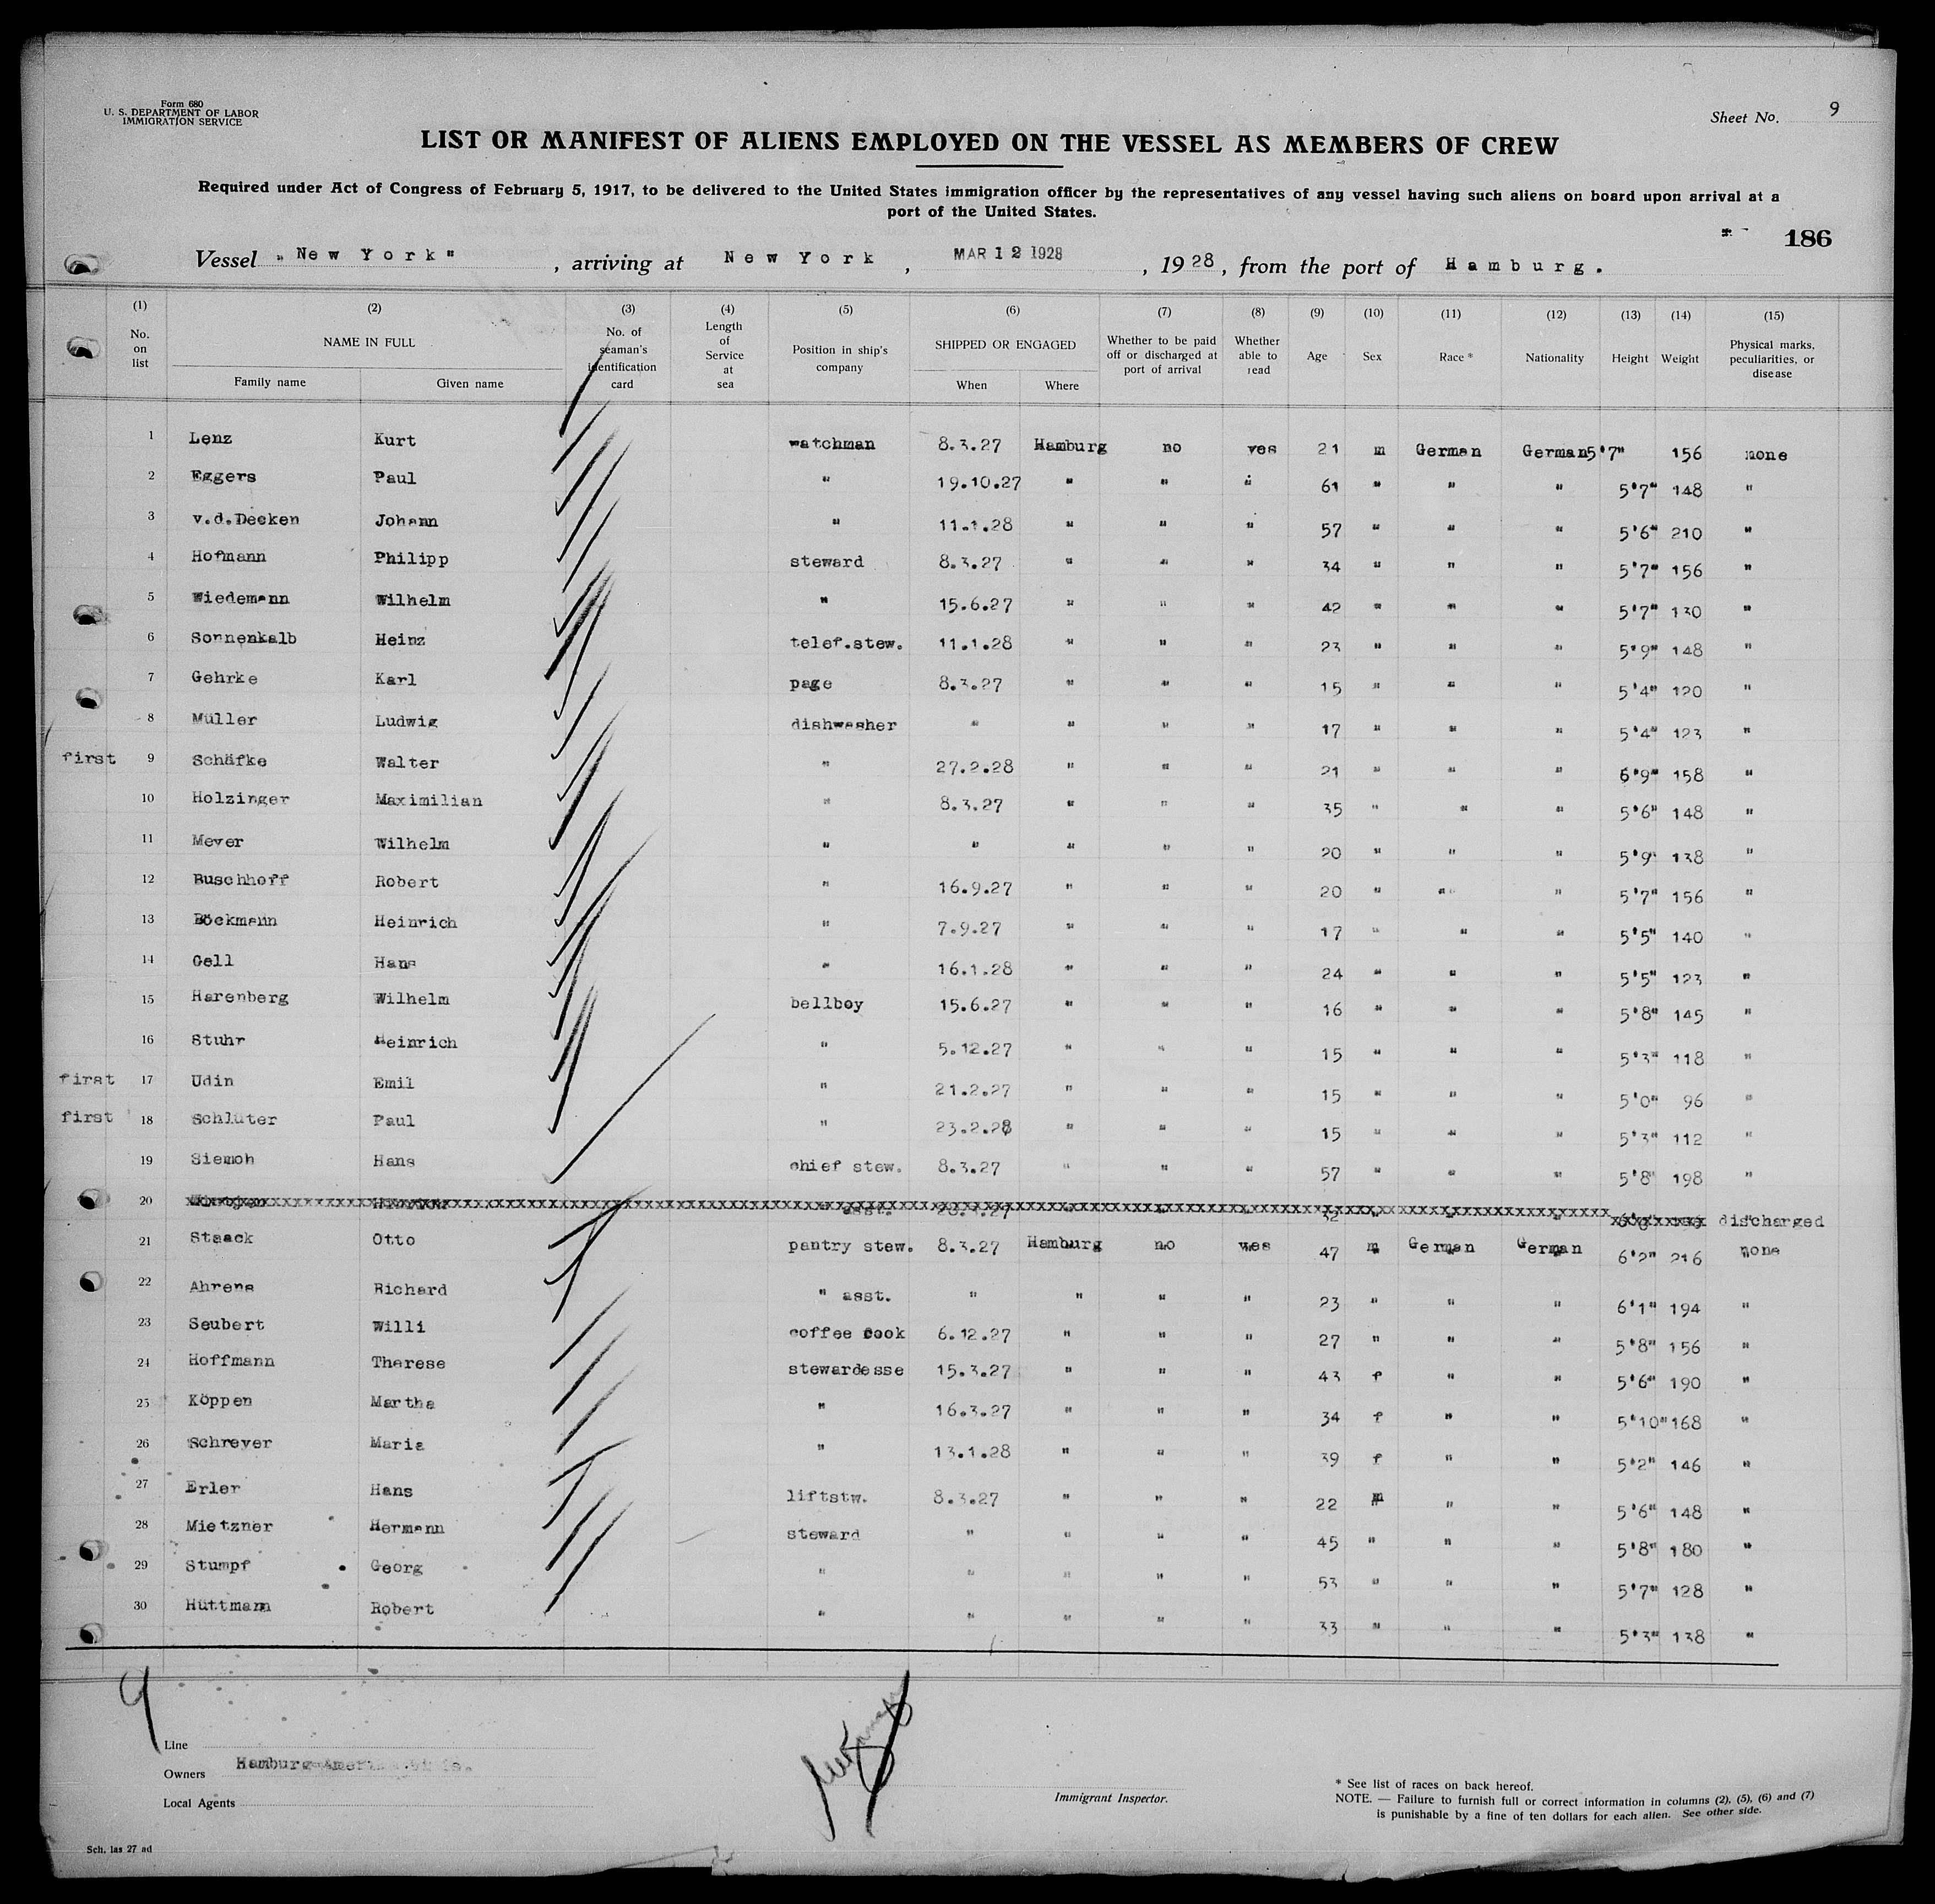 Form 680
U. S. DEPARTMENT OF LABOR
IMMIGRATION SERVICE
Sheet No. 9
LIST OR MANIFEST OF ALIENS EMPLOYED ON THE VESSEL AS MEMBERS OF CREW
Required under Act of Congress of February 5, 1917, to be delivered to the United States immigration officer by the representatives of any vessel having such aliens on board upon arrival at a
port of the United States.
186
Vessel "New York", arriving at New York, MAR 12 1928, 1928, from the port of Hamburg.
(1) (2) (3) (4) (5) (6) (7) (8) (9) (10) (11) (12) (13) (14) (15)
No. on list
NAME IN FULL
Family name Given name
No. of seaman's identification card
Length of Service at sea
Position in ship's company
SHIPPED OR ENGAGED
When Where
Whether to be paid off or discharged at port of arrival
Whether able to read
Age
Sex
Race *
Nationality
Height
Weight
Physical marks, peculiarities, or disease
1 Lenz Kurt watchman 8.3.27 Hamburg no yes 21 m German German 5'7" 156 none
2 Eggers Paul " 19.10.27 " " " 61 " " " 5'7" 148 "
3 v.d.Decken Johann " 11.1.28 " " " 57 " " " 5'6" 210 "
4 Hofmann Philipp steward 8.3.27 " " " 34 " " " 5'7" 156 "
5 Wiedemann Wilhelm " 15.6.27 " " " 42 " " " 5'7" 130 "
6 Sonnenkalb Heinz telef.stew. 11.1.28 " " " 23 " " " 5'9" 148 "
7 Gehrke Karl page 8.3.27 " " " 15 " " " 5'4" 120 "
8 Müller Ludwig dishwasher " " " " 17 " " " 5'4" 123 "
first 9 Schäfke Walter " 27.2.28 " " " 21 " " " 6'9" 158 "
10 Holzinger Maximilian " 8.3.27 " " " 35 " " " 5'6" 148 "
11 Meyer Wilhelm " " " " " 20 " " " 5'9" 138 "
12 Buschhoff Robert " 16.9.27 " " " 20 " " " 5'7" 156 "
13 Böckmann Heinrich " 7.9.27 " " " 17 " " " 5'5" 140 "
14 Gell Hans " 16.1.28 " " " 24 " " " 5'5" 123 "
15 Harenberg Wilhelm bellboy 15.6.27 " " " 16 " " " 5'8" 145 "
16 Stuhr Heinrich " 5.12.27 " " " 15 " " " 5'3" 118 "
first 17 Udin Emil " 21.2.27 " " " 15 " " " 5'0" 96 "
first 18 Schlüter Paul " 23.2.28 " " " 15 " " " 5'3" 112 "
19 Siemoh Hans chief stew. 8.3.27 " " " 57 " " " 5'8" 198 "
20 " asst. discharged
21 Staack Otto pantry stew. 8.3.27 Hamburg no yes 47 m German German 6'2" 216 none
22 Ahrens Richard " asst. " " " " 23 " " " 6'1" 194 "
23 Seubert Willi coffee cook 6.12.27 " " " 27 " " " 5'8" 156 "
24 Hoffmann Therese stewardesse 15.3.27 " " " 43 f " " 5'6" 190 "
25 Köppen Martha " 16.3.27 " " " 34 f " " 5'10" 168 "
26 Schreyer Maria " 13.1.28 " " " 39 f " " 5'2" 146 "
27 Erler Hans liftstw. 8.3.27 " " " 22 m " " 5'6" 148 "
28 Mietzner Hermann steward " " " " 45 " " " 5'8" 180 "
29 Stumpf Georg " " " " " 53 " " " 5'7" 128 "
30 Hüttmann Robert " " " " " 33 " " " 5'3" 138 "
9
Line
Owners Hamburg-Amerika
Local Agents
Immigrant Inspector.
* See list of races on back hereof.
NOTE. — Failure to furnish full or correct information in columns (2), (5), (6) and (7)
is punishable by a fine of ten dollars for each alien. See other side.
Sch. las 27 ad